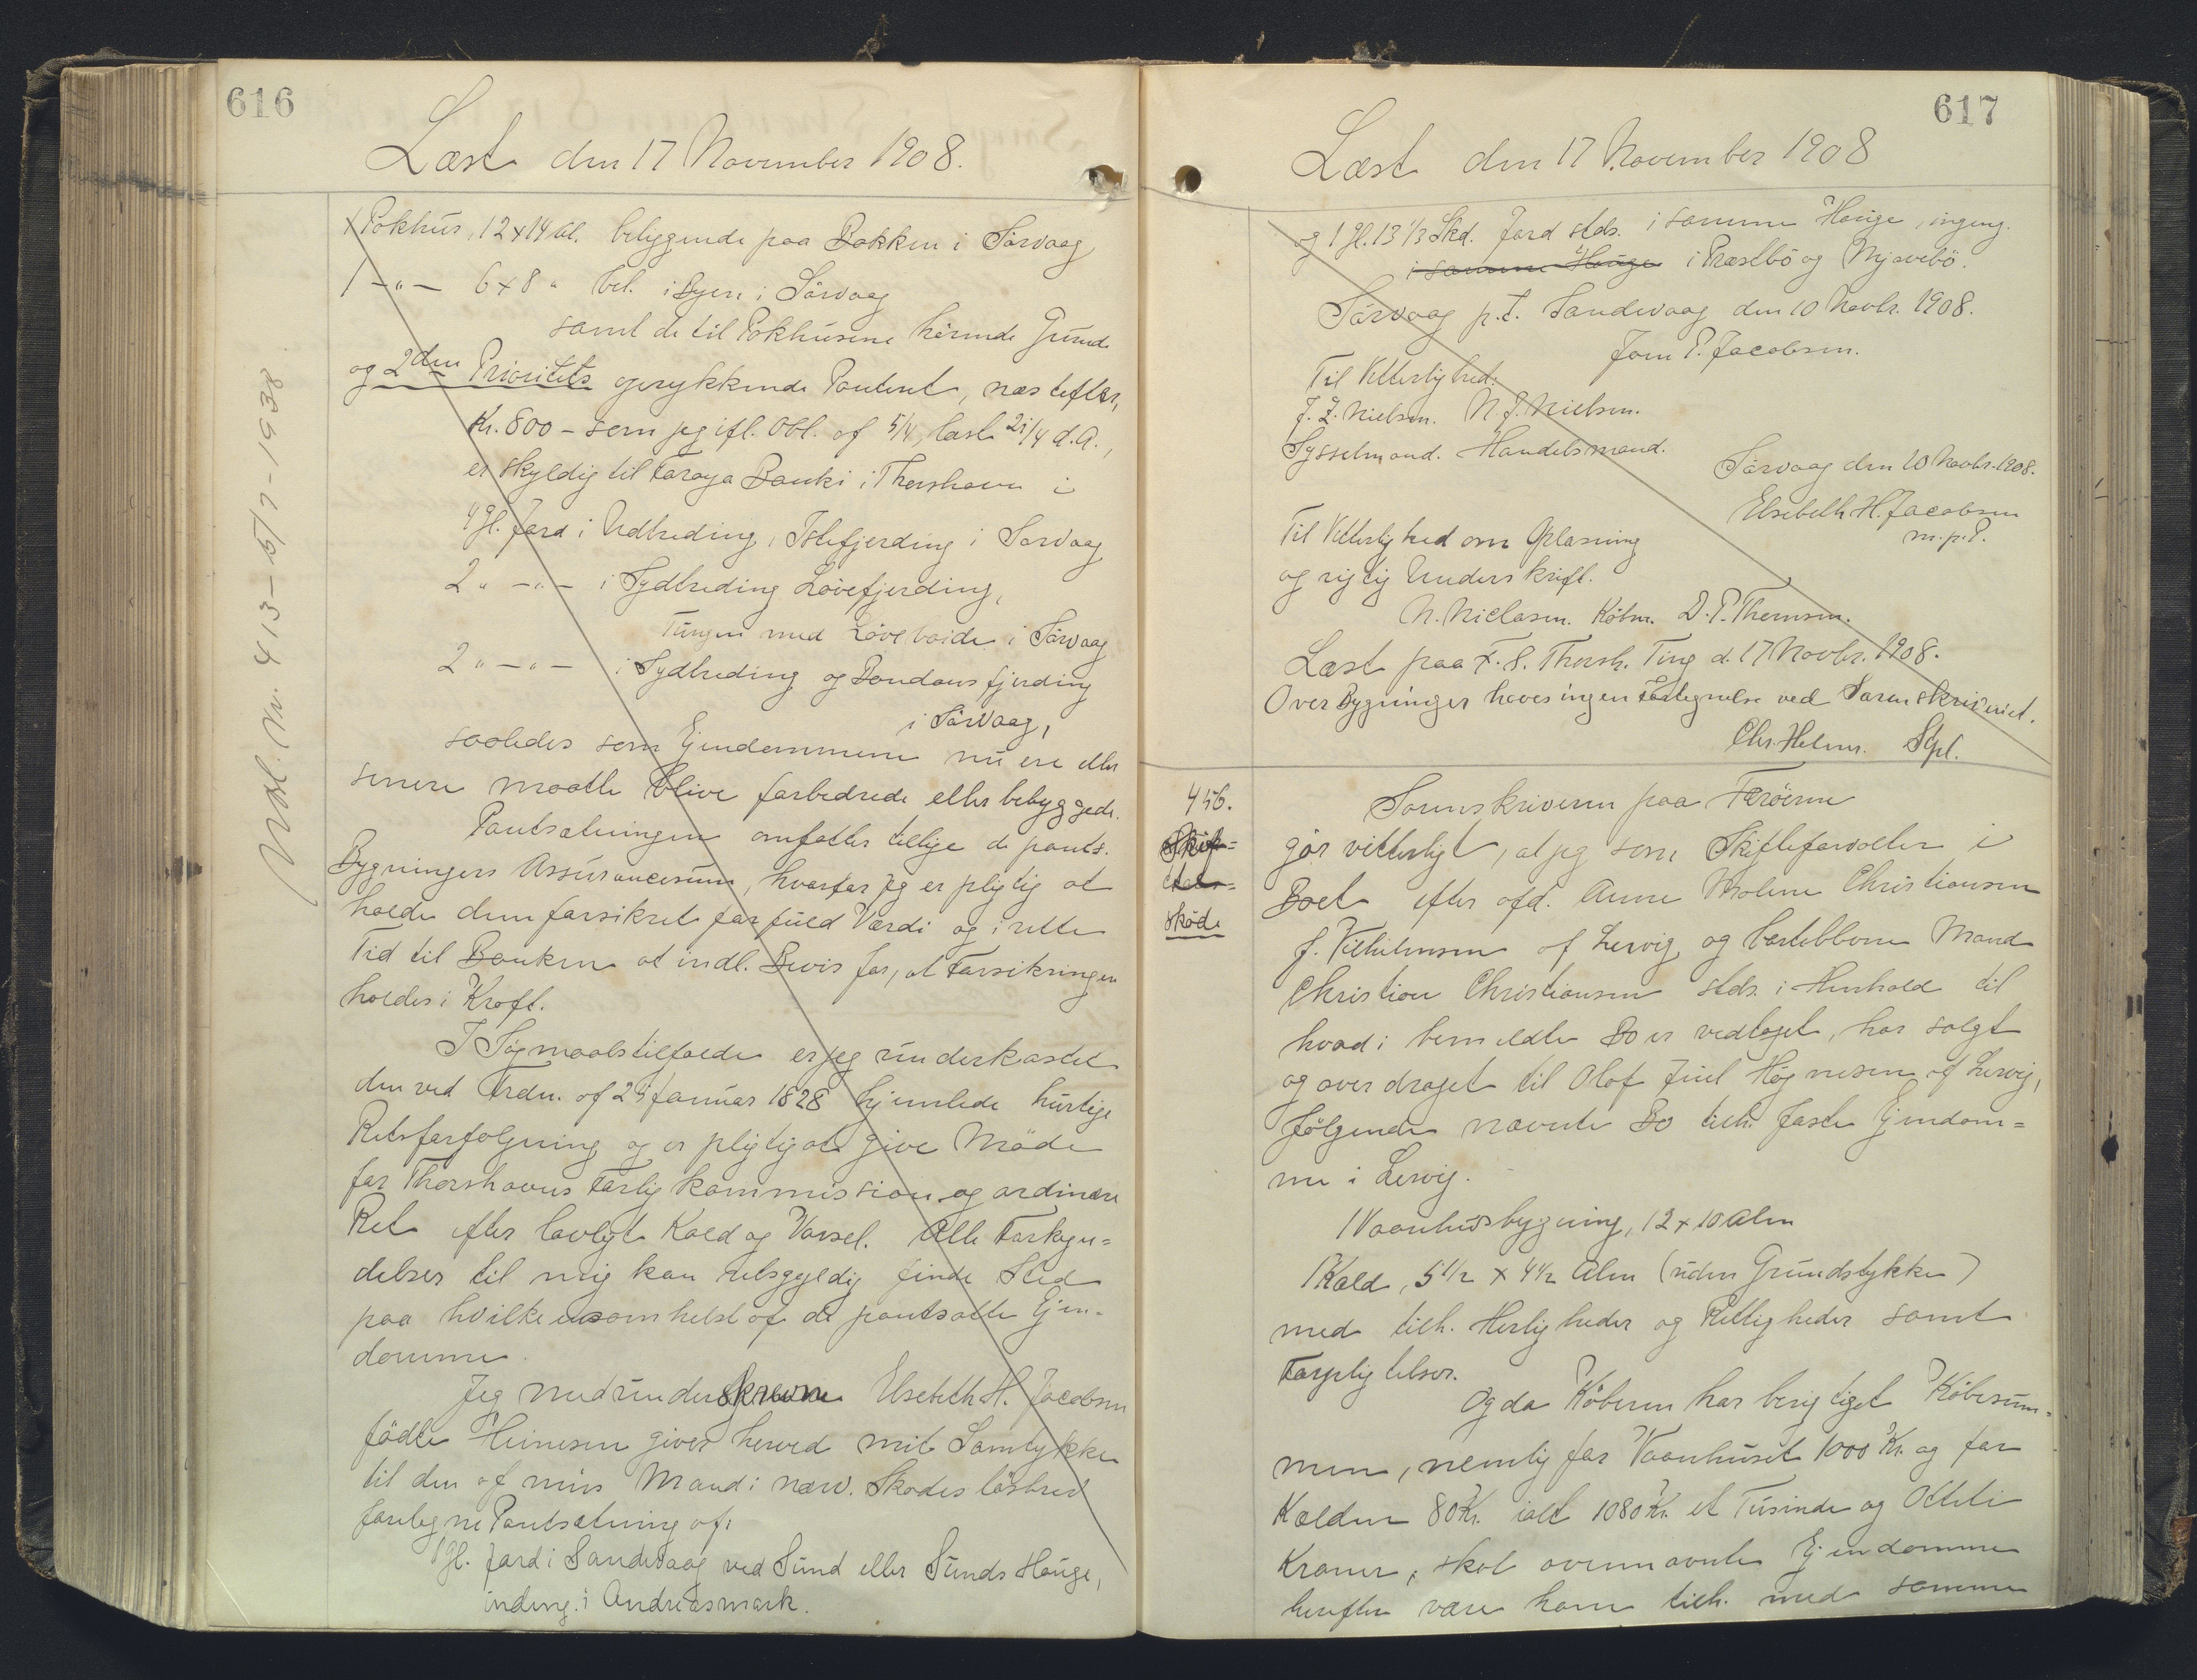 616
Læst den 17 November 1908.
1 Pakhus, 12 x 14 Al. beliggende paa Bakken i Sörvaag
1 -"- 6 x 8 " bel. i Byen i Sörvaag
samt de til Pakhusene hörende Grunde
og 2den Prioritets oprykkende Panteret, næstefter,
Kr. 800 - som jeg ifl. Obl. af 5/4, læst 21/4 d.A.,
er skyldig til Føroya Banki i Thorshavn i
4 gl. Jord i Udbreding, Istefjerding i Sörvaag
2 " -"- i Sydbreding Lövefjerding,
Tungen med i Sörvaag
2 " -"- i Sydbreding og Bondansfjerding
i Sörvaag,
saaledes som Ejendommene nu ere eller
senere maatte blive forbedrede eller bebyggede.
Pantsætningen omfatter tillige de pants.
Bygningers Assurancesum, hvorfor jeg er pligtig at
holde dem forsikret for fuld Værdi og i rette
Tid til Banken at indl. Bevis for, at Forsikringen
holdes i Kraft.
I Søgmaalstilfælde er jeg underkastet
den ved Frdn. af 25 Januar 1828 hjemlede hurtige
Retsforfølgning og er pligtig at give Möde
for Thorshavns Forligskommission og ordinære
Ret efter lovligt Kald og Varsel. Alle Forkyn=
delser til mig kan retsgyldig finde Sted
paa hvilkensomhelst af de pantsatte Ejen-
domme.
Jeg medunderskrevne Elsebeth H. Jacobsen
födte Heinesen giver herved mit Samtykke
til den af min Mand i nærv. Skadeslösbrev
foretagne Pantsætning af:
1 gl. Jord i Sandevaag ved Sund eller Sunds Houge,
indeng. i Andreasmark.
Udsl. Nr. 413 - 5/7 - 1938.
617
Læst den 17 November 1908
og 1 gl. 13 1/3 Skd. Jord stds. i samme Houge, ingeng.
i samme Houge i Præstbö og Njovebö.
Sörvaag p.t. Sandevaag den 10 Novbr. 1908.
Joen P. Jacobsen.
Til Vitterlighed:
J. Z. Nielsen. N. J. Nielsen.
Sysselmand. Handelsmand.
Sörvaag den 10 Novbr. 1908.
Elsebeth H. Jacobsen
m.p.P.
Til Vitterlighed om Oplæsning
og rigtig Underskrift.
N. Niclasen. Köbm. D. P. Thomsen.
Læst paa F. S. Thorsh. Ting d. 17 Novbr. 1908.
Over Bygninger haves ingen Fortegnelse ved Sorenskriveriet.
Chr. Helms. Spl.
456.
Skif=
skøde
Sorenskriveren paa Færöerne
gör vitterligt, at jeg som Skifteforvalter i
Boet efter afd. Anne Malene Christiansen
f. Vilhelmsen af Lervig og efterlevende Mand
Christian Christiansen stds. i Henhold til
hvad i bemeldte Bo er vedtaget, har solgt
og overdraget til Olaf Juul Høgnesen af Lervig,
fölgende nævnte Bo tilh. faste Ejendom=
me i Lervig.
1 Vaanhusbygning, 12 x 10 Alen
1 Kæld, 5 1/2 x 4 1/2 Alen (uden Grundstykke)
med tilh. Herligheder og Rettigheder samt
Forpligtelser.
Og da Köberen har berigtiget Köbesum=
men, nemlig for Vaanhuset 1000 Kr. og for
Kælden 80 Kr. ialt 1080 Kr. et Tusinde og Otteti
Kroner, skal ovennævnte Ejendomme
herefter være ham tilh. med samme